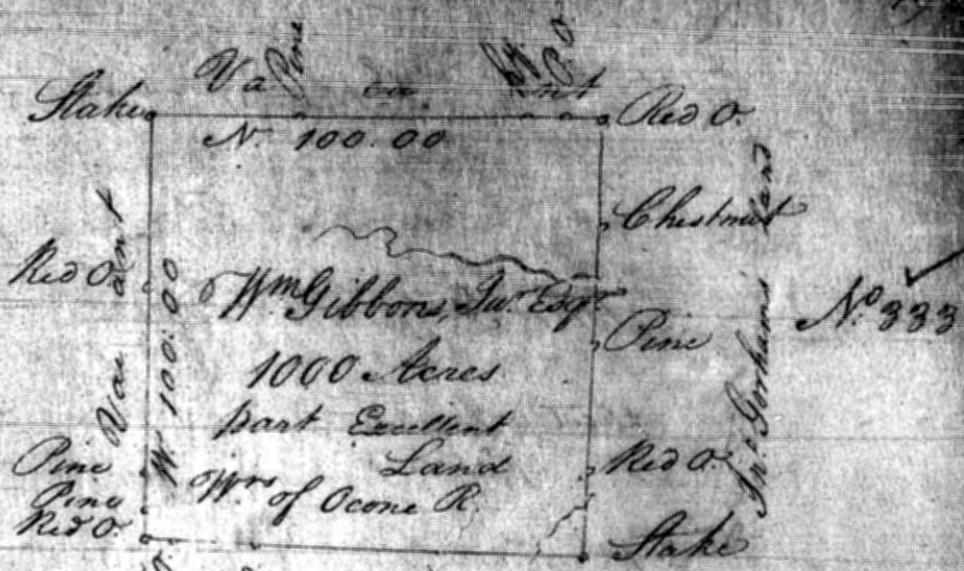 Va Pine ca nt
Stake
Red O.
N. 100.00
Chestnut
Red O.
Vac ant
W 100.00
Wm Gibbons, Junr Esqr
1000 Acres
part Excellent
Land
Wrs of Ocone R.
Pine
Jno Gorhams Land
No 333
Red O.
Pine
Pine
Red O.
Stake